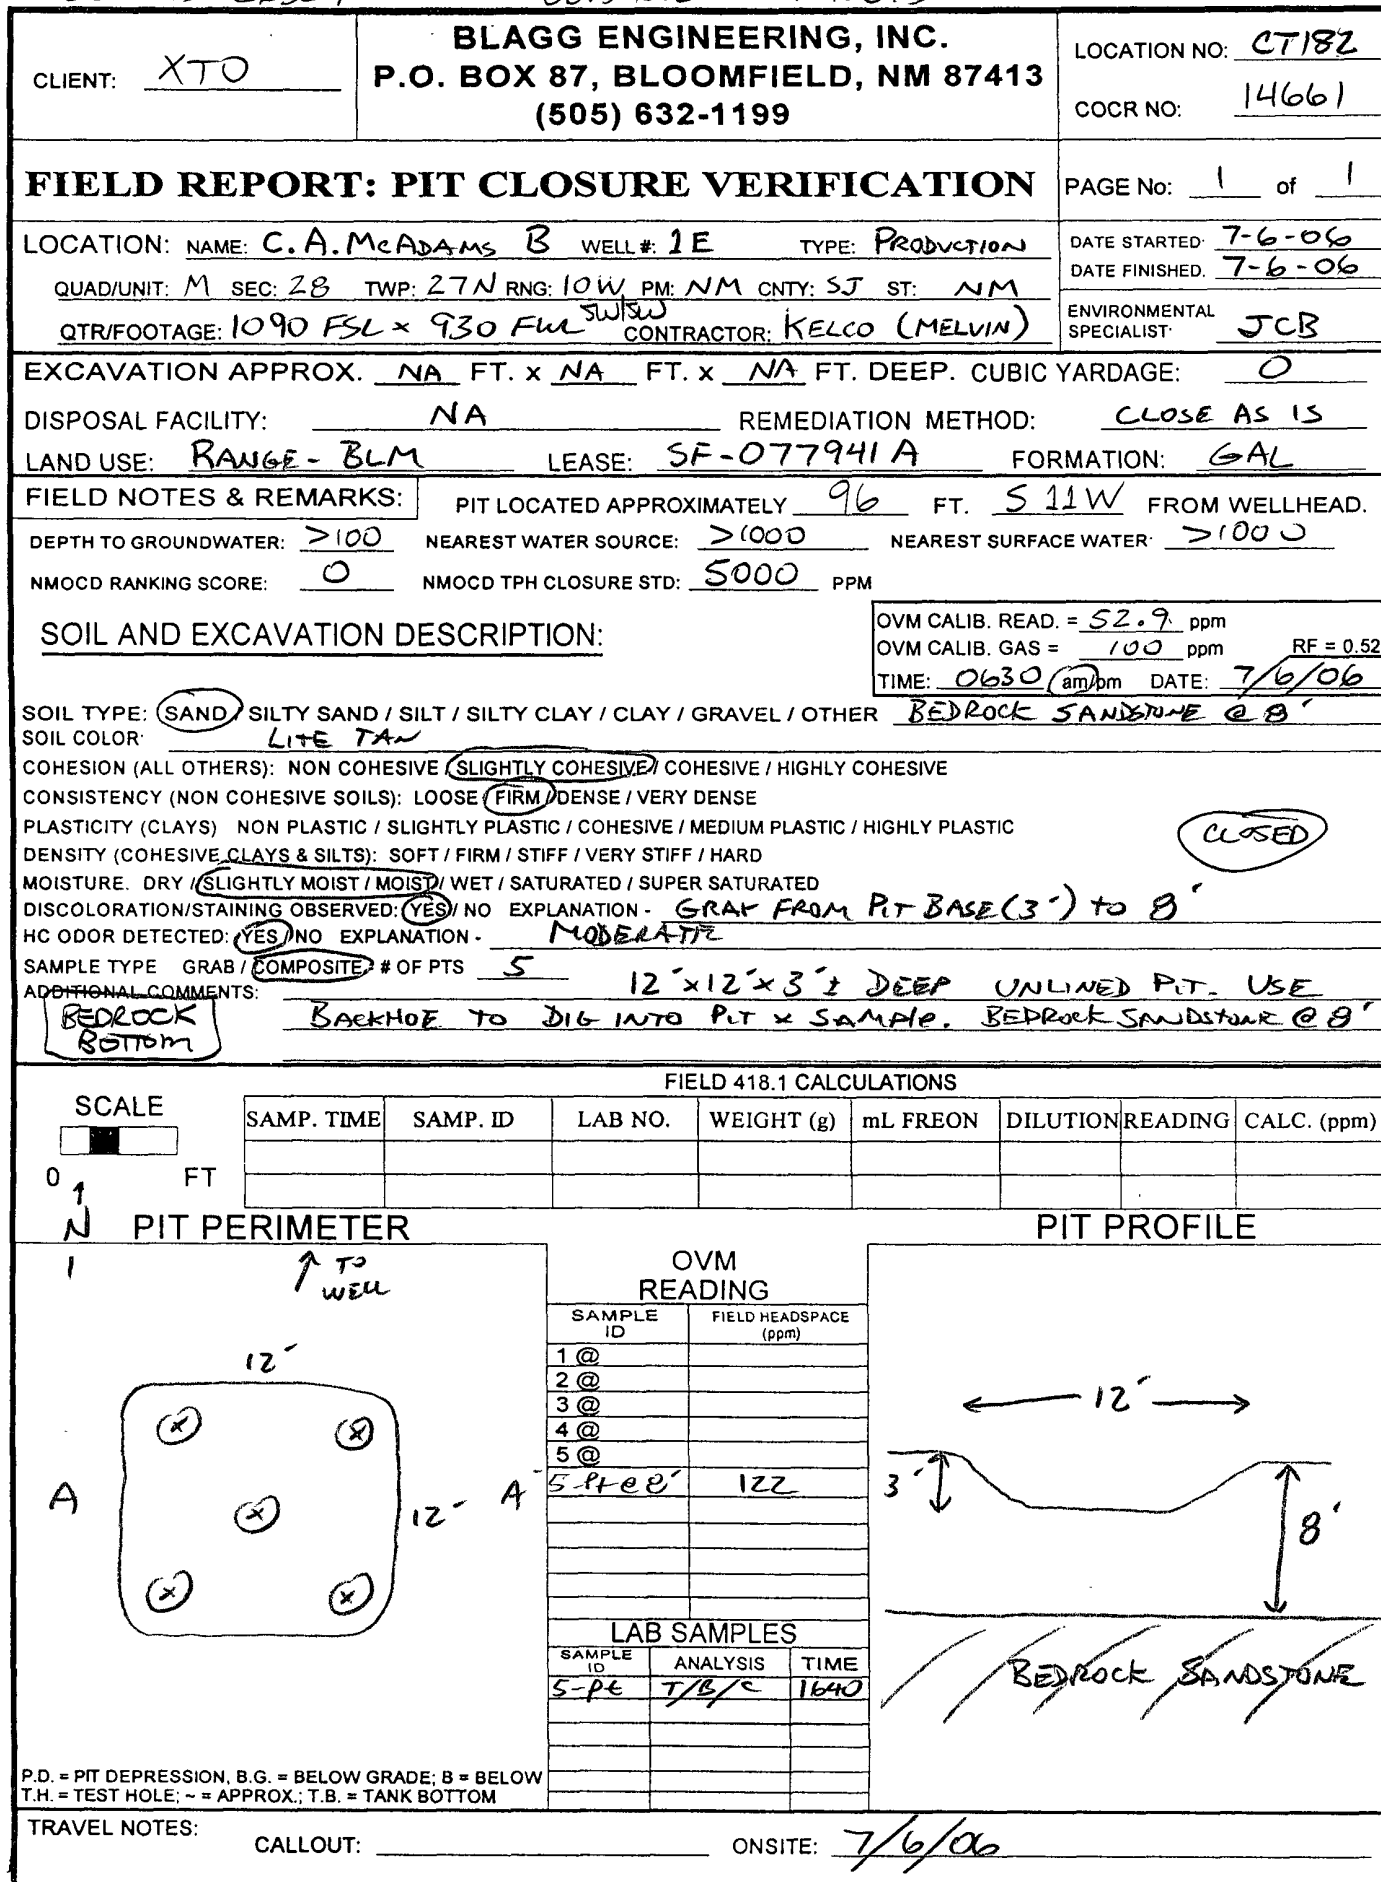 BLAGG ENGINEERING, INC.
P.O. BOX 87, BLOOMFIELD, NM 87413
(505) 632-1199
CLIENT: XTO
LOCATION NO: CT182
COCR NO: 14661
FIELD REPORT: PIT CLOSURE VERIFICATION
PAGE No: 1 of 1
LOCATION: NAME: C.A. McADAMS B WELL #: 1E TYPE: PRODUCTION
QUAD/UNIT: M SEC: 28 TWP: 27N RNG: 10W PM: NM CNTY: SJ ST: NM
QTR/FOOTAGE: 1090 FSL x 930 FWL SW/SW CONTRACTOR: KELCO (MELVIN)
DATE STARTED: 7-6-06
DATE FINISHED. 7-6-06
ENVIRONMENTAL
SPECIALIST: JCB
EXCAVATION APPROX. NA FT. x NA FT. x NA FT. DEEP. CUBIC YARDAGE: 0
DISPOSAL FACILITY: NA REMEDIATION METHOD: CLOSE AS IS
LAND USE: RANGE - BLM LEASE: SF-077941A FORMATION: GAL
FIELD NOTES & REMARKS: PIT LOCATED APPROXIMATELY 96 FT. S 11W FROM WELLHEAD.
DEPTH TO GROUNDWATER: >100 NEAREST WATER SOURCE: >1000 NEAREST SURFACE WATER: >1000
NMOCD RANKING SCORE: 0 NMOCD TPH CLOSURE STD: 5000 PPM
SOIL AND EXCAVATION DESCRIPTION:
OVM CALIB. READ. = 52.9 ppm
OVM CALIB. GAS = 100 ppm RF = 0.52
TIME: 0630 am/pm DATE: 7/6/06
SOIL TYPE: SAND / SILTY SAND / SILT / SILTY CLAY / CLAY / GRAVEL / OTHER BEDROCK SANDSTONE @ 8'
SOIL COLOR: LITE TAN
COHESION (ALL OTHERS): NON COHESIVE / SLIGHTLY COHESIVE / COHESIVE / HIGHLY COHESIVE
CONSISTENCY (NON COHESIVE SOILS): LOOSE / FIRM / DENSE / VERY DENSE
PLASTICITY (CLAYS) NON PLASTIC / SLIGHTLY PLASTIC / COHESIVE / MEDIUM PLASTIC / HIGHLY PLASTIC
CLOSED
DENSITY (COHESIVE CLAYS & SILTS): SOFT / FIRM / STIFF / VERY STIFF / HARD
MOISTURE. DRY / SLIGHTLY MOIST / MOIST / WET / SATURATED / SUPER SATURATED
DISCOLORATION/STAINING OBSERVED: YES / NO EXPLANATION - GRAY FROM PIT BASE (3') TO 8'
HC ODOR DETECTED: YES / NO EXPLANATION - MODERATE
SAMPLE TYPE GRAB / COMPOSITE # OF PTS 5
ADDITIONAL COMMENTS: 12'x12'x3'± DEEP UNLINED PIT. USE
BACKHOE TO DIG INTO PIT & SAMPLE. BEDROCK SANDSTONE @ 8'
BEDROCK
BOTTOM
FIELD 418.1 CALCULATIONS
SCALE
0 FT
SAMP. TIME SAMP. ID LAB NO. WEIGHT (g) mL FREON DILUTION READING CALC. (ppm)
N
PIT PERIMETER
PIT PROFILE
TO
WELL
12'
A
A'
12'
OVM
READING
SAMPLE
ID
FIELD HEADSPACE
(ppm)
1 @
2 @
3 @
4 @
5 @
5-pt @ 8' 122
LAB SAMPLES
SAMPLE
ID
ANALYSIS TIME
5-pt T/B/C 1640
12'
3'
8'
BEDROCK SANDSTONE
P.D. = PIT DEPRESSION, B.G. = BELOW GRADE; B = BELOW
T.H. = TEST HOLE; ~ = APPROX.; T.B. = TANK BOTTOM
TRAVEL NOTES:
CALLOUT: ONSITE: 7/6/06